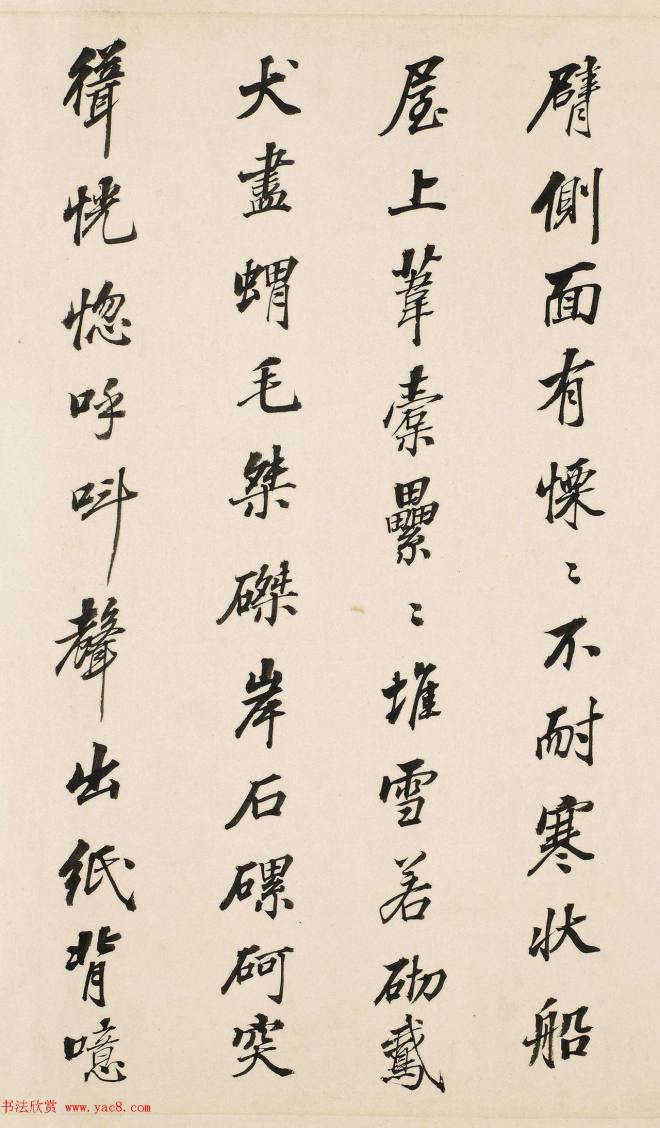 臂側面有慄〻不耐寒狀船
屋上葦橐纍〻堆雪若砌
犬盡蝟毛桀磔岸石磥砢突
聳恍惚呼呌聲出紙背噫
书法欣赏 www.yac8.com